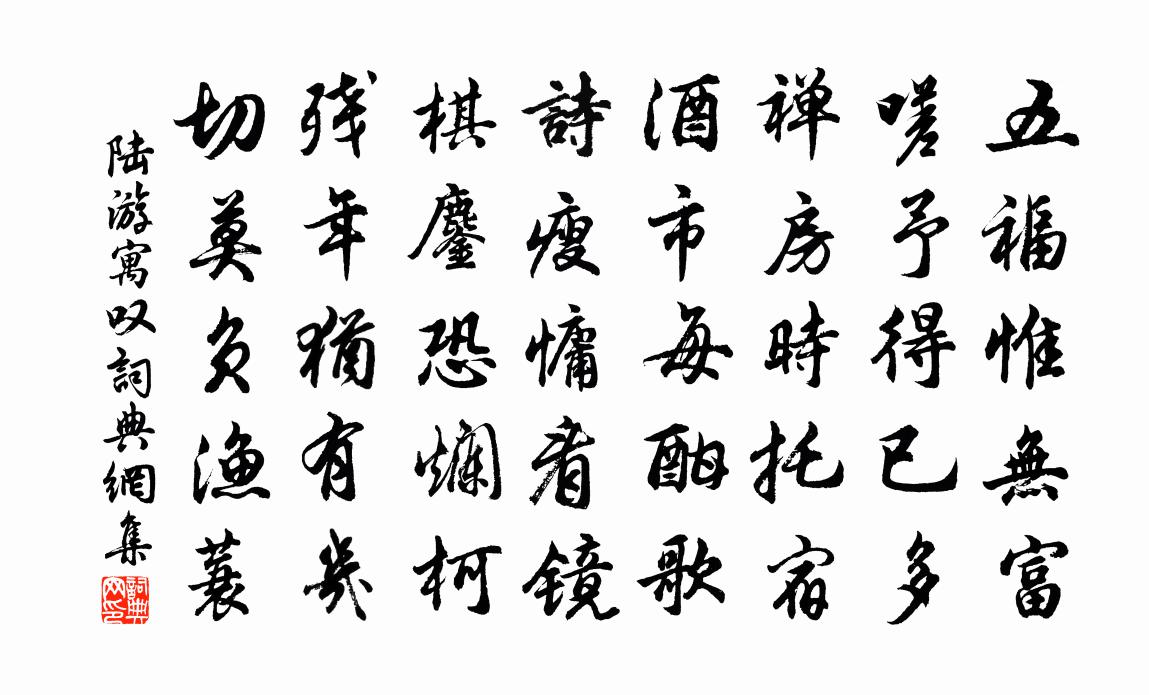 五福惟無富
嗟予得已多
禅房時托宿
酒市每酣歌
詩瘦慵看镜
棋鏖恐爛柯
残年猶有幾
切莫负漁蓑
陆游寓叹詞典網集
詞典
网印